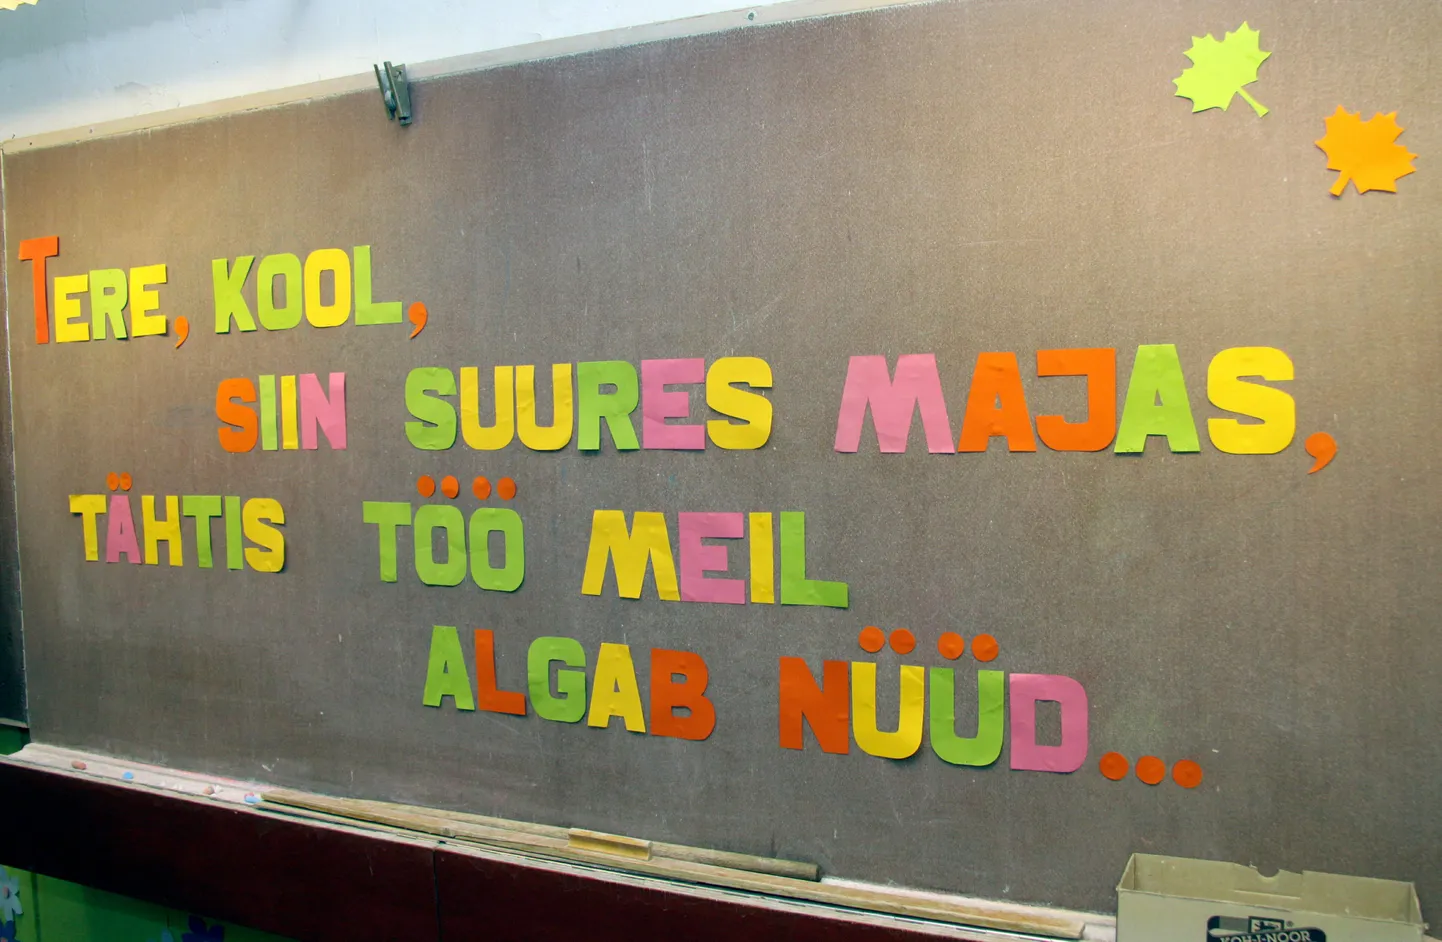 TERE, KOOL,
SIIN SUURES MAJAS,
TÄHTIS TÖÖ MEIL
ALGAB NÜÜD...
KOH-I-NOOR